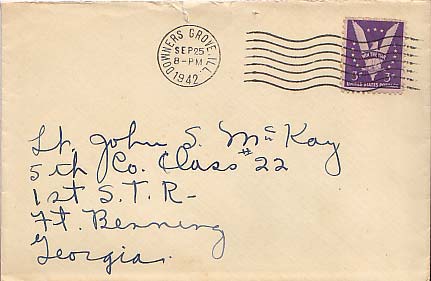 DOWNERS GROVE, ILL.
SEP 25
8-PM
1942
WIN THE WAR
3¢ 3¢
UNITED STATES POSTAGE
Lt. John S. McKay
5th Co. Class #22
1st S.T.R-
Ft. Benning
Georgia.